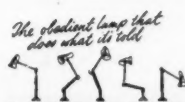 The obedient lamp that
does what it's told